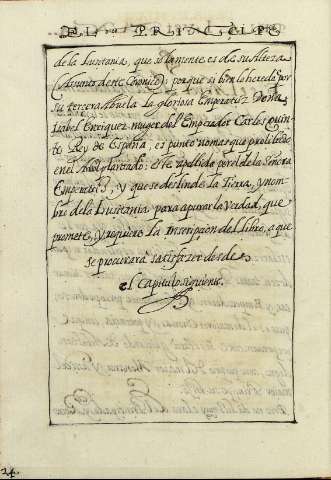 EL PRINCIPE
de la Lusitana, que solamente es de su Alteza
(Asunto deste Chronico) porque si bien lo hereda por
su tercera Abuela la gloriosa Emperatriz Doña
Isabel Enriquez muger del Emperador Carlos quin
to Rey de España, es punto no mas que
en el plantado: este apellido por el de la Señora
Emperatriz, y que se deslinde la Tierra, y nom
bre de la Lusitania para apurar la Verdad, que
promete, y requiere la Inscripcion del Libro, a que
se procurará satisfazer desde
el Capitulo siguiente.
24